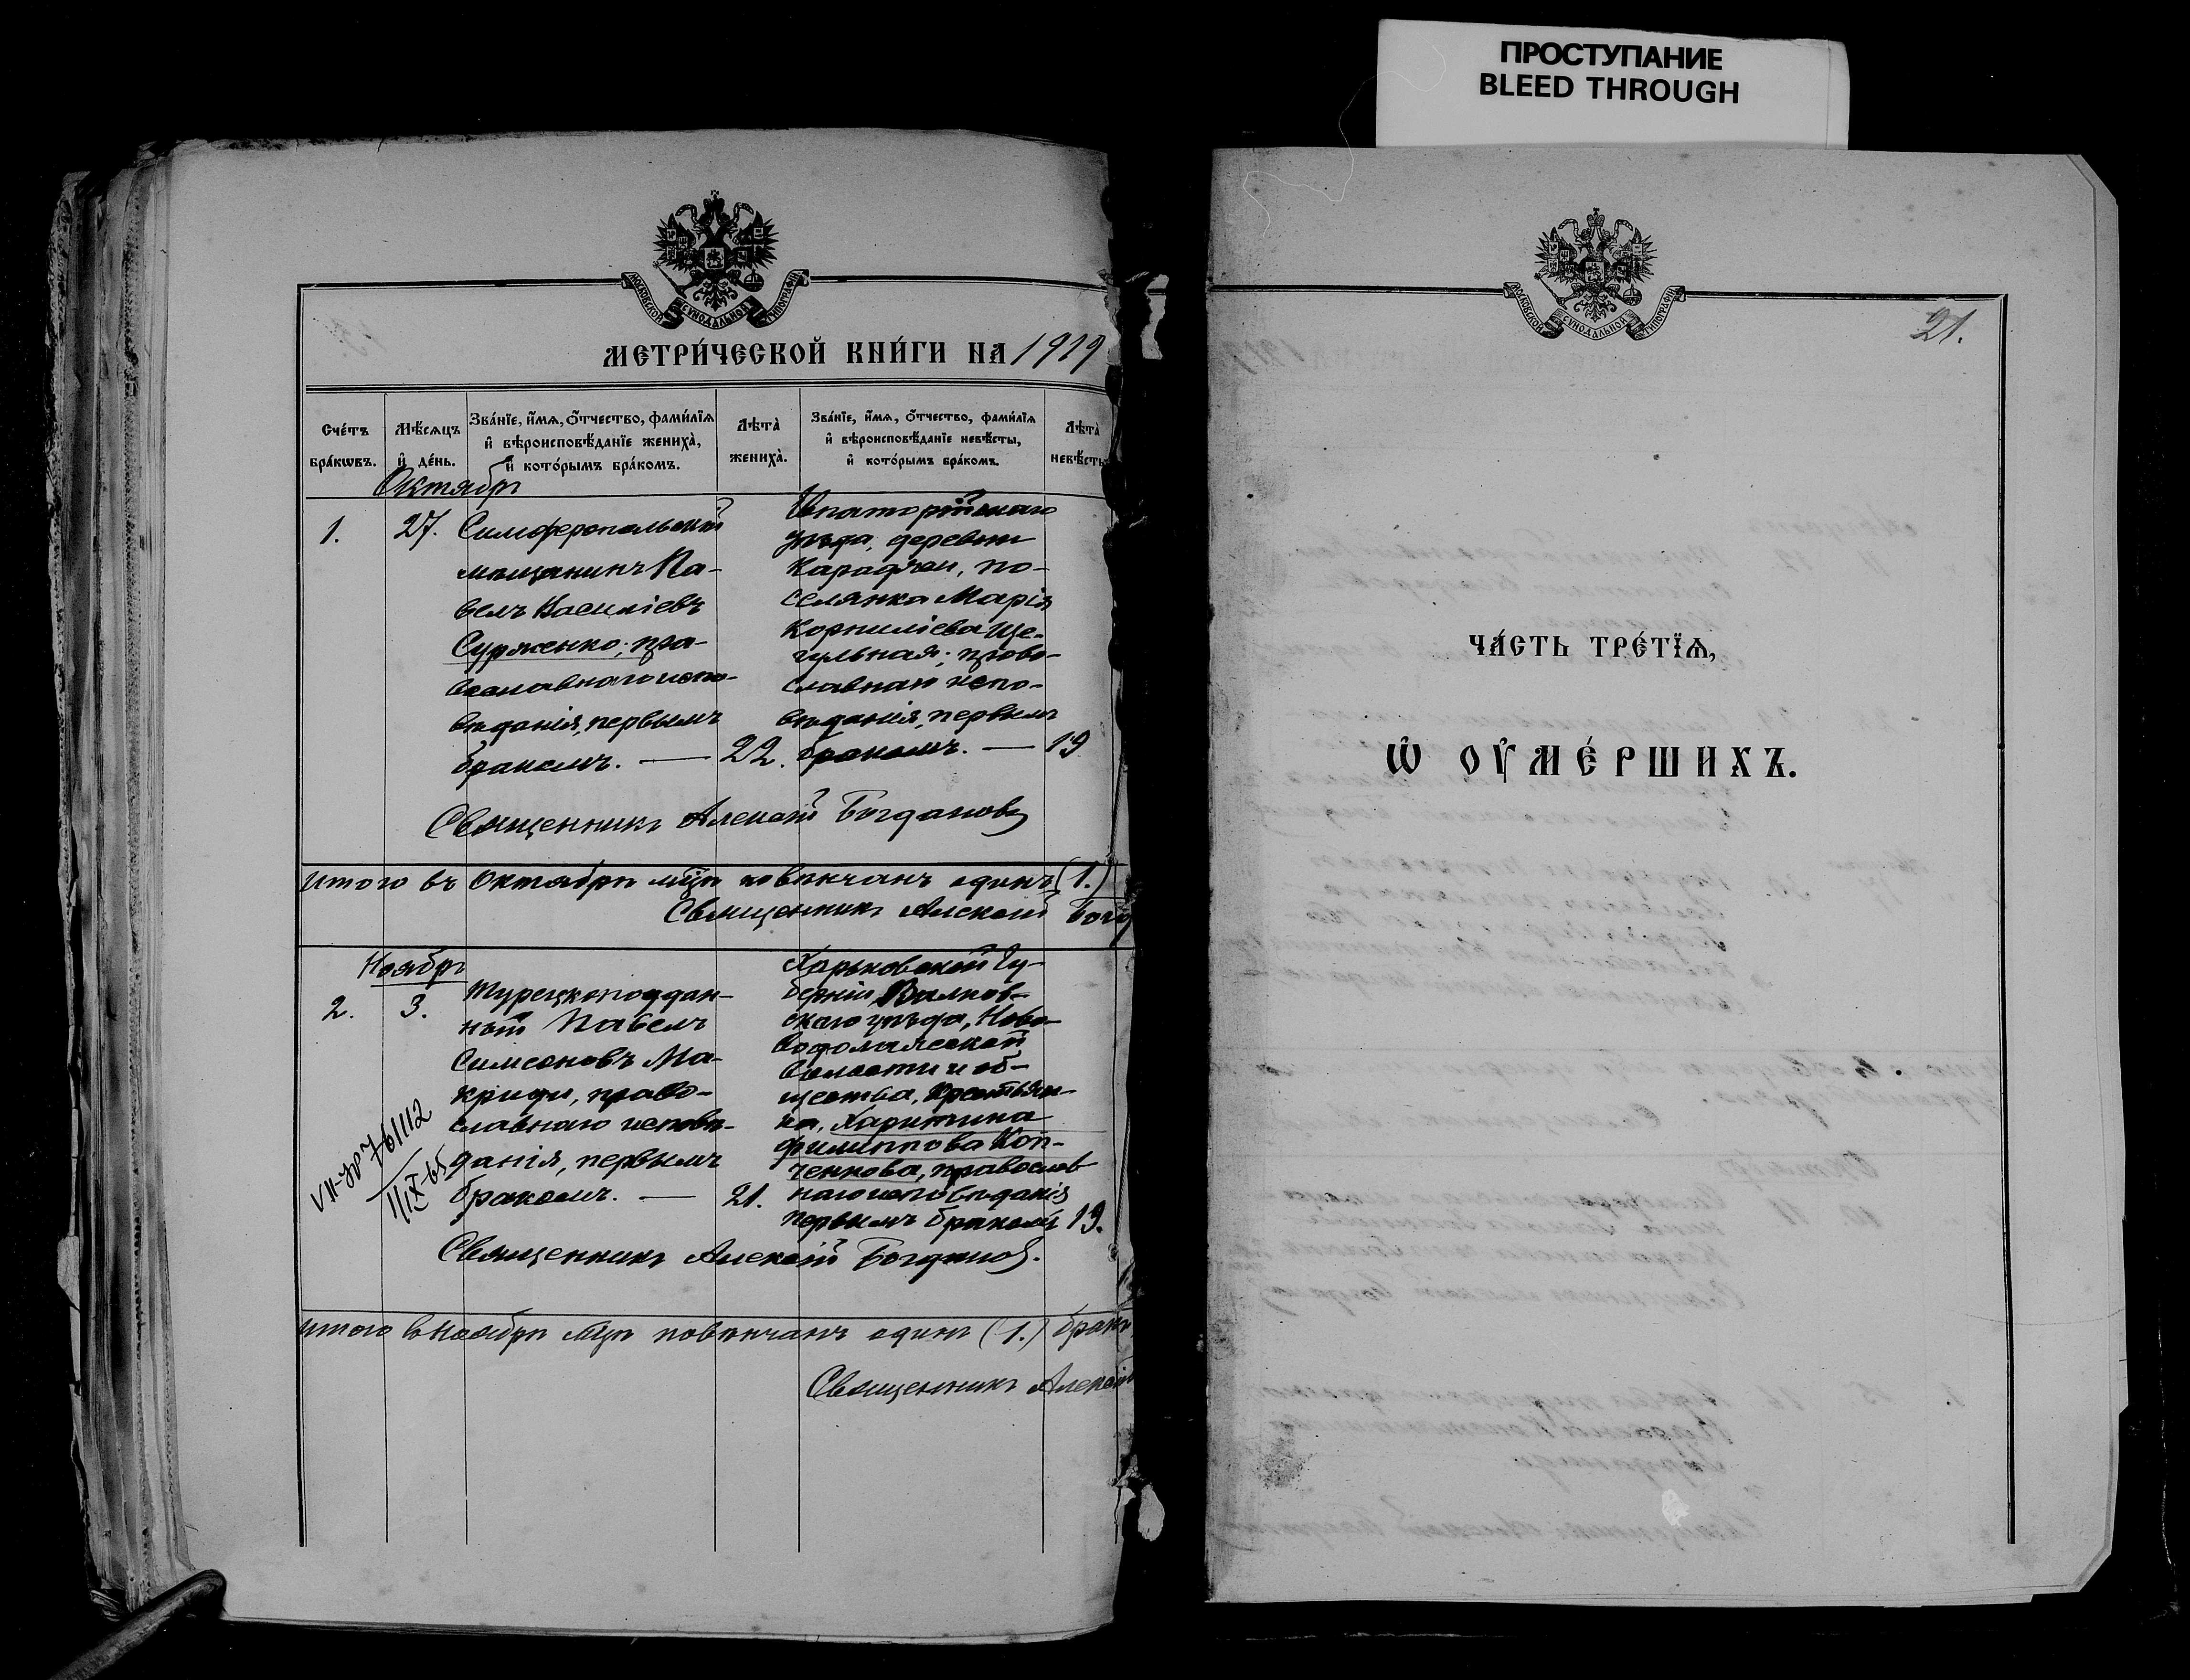 ПРОСТУПАНИЕ
BLEED THROUGH
МОСКОВСКОЙ СѴНОДАЛЬНОЙ ТИПОГРАФІИ
МЕТРИ́ЧЕСКОЙ КНИ́ГИ НА 1919
Сче́тъ бра́кѡвъ.
Мѣ́сѧцъ и҆ де́нь.
Зва́нїе, и҆́мѧ, ѻ҆́тчество, фами́лїѧ и҆ вѣроисповѣ́данїе жениха̀, и҆ кото́рымъ бра́комъ.
Лѣта̀ жениха̀.
Зва́нїе, и҆́мѧ, ѻ҆́тчество, фами́лїѧ и҆ вѣроисповѣ́данїе невѣ́сты, и҆ кото́рымъ бра́комъ.
Лѣта̀ невѣ́сты
Октябрь
1.
27.
Симферопольскій
мѣщанинъ Па-
велъ Василіевъ
Сурженко; пра-
вославнаго испо-
вѣданія, первымъ
бракомъ. — 22.
Евпаторійскаго
уѣзда, деревни
по-
селянка Марія
Корниліева Ще-
гульная; право-
славнаго испо-
вѣданія, первым
бракомъ. — 19
Священникъ Алексій Богдановъ
Итого въ Октябрѣ мцѣ повѣнчанъ одинъ (1.)
Священникъ Алексій Богд
Ноябрь
2.
3.
Турецкоподдан-
ный Павелъ
Симеоновъ Ма-
криди, право-
славнаго исповѣ-
данія, первымъ
бракомъ. — 21.
Харьковской Гу-
берніи, Валков-
скаго уѣзда, Ново-
водолажской
Волости и об-
щества, крестьян-
ка, Харитина
Филиппова Коп-
ченкова, православ
наго исповѣданія
первымъ бракомъ 19.
VII-ЗР 761112
11/IX-65
Священникъ Алексій Богдановъ.
Итого въ Ноябрѣ мцѣ повѣнчанъ одинъ (1.) бракъ
Священникъ Алексій
МОСКОВСКОЙ СѴНОДАЛЬНОЙ ТИПОГРАФІИ
21.
ЧА́СТЬ ТРЕ́ТЇѦ,
Ѡ҆ ОУ҆МЕ́РШИХЪ.